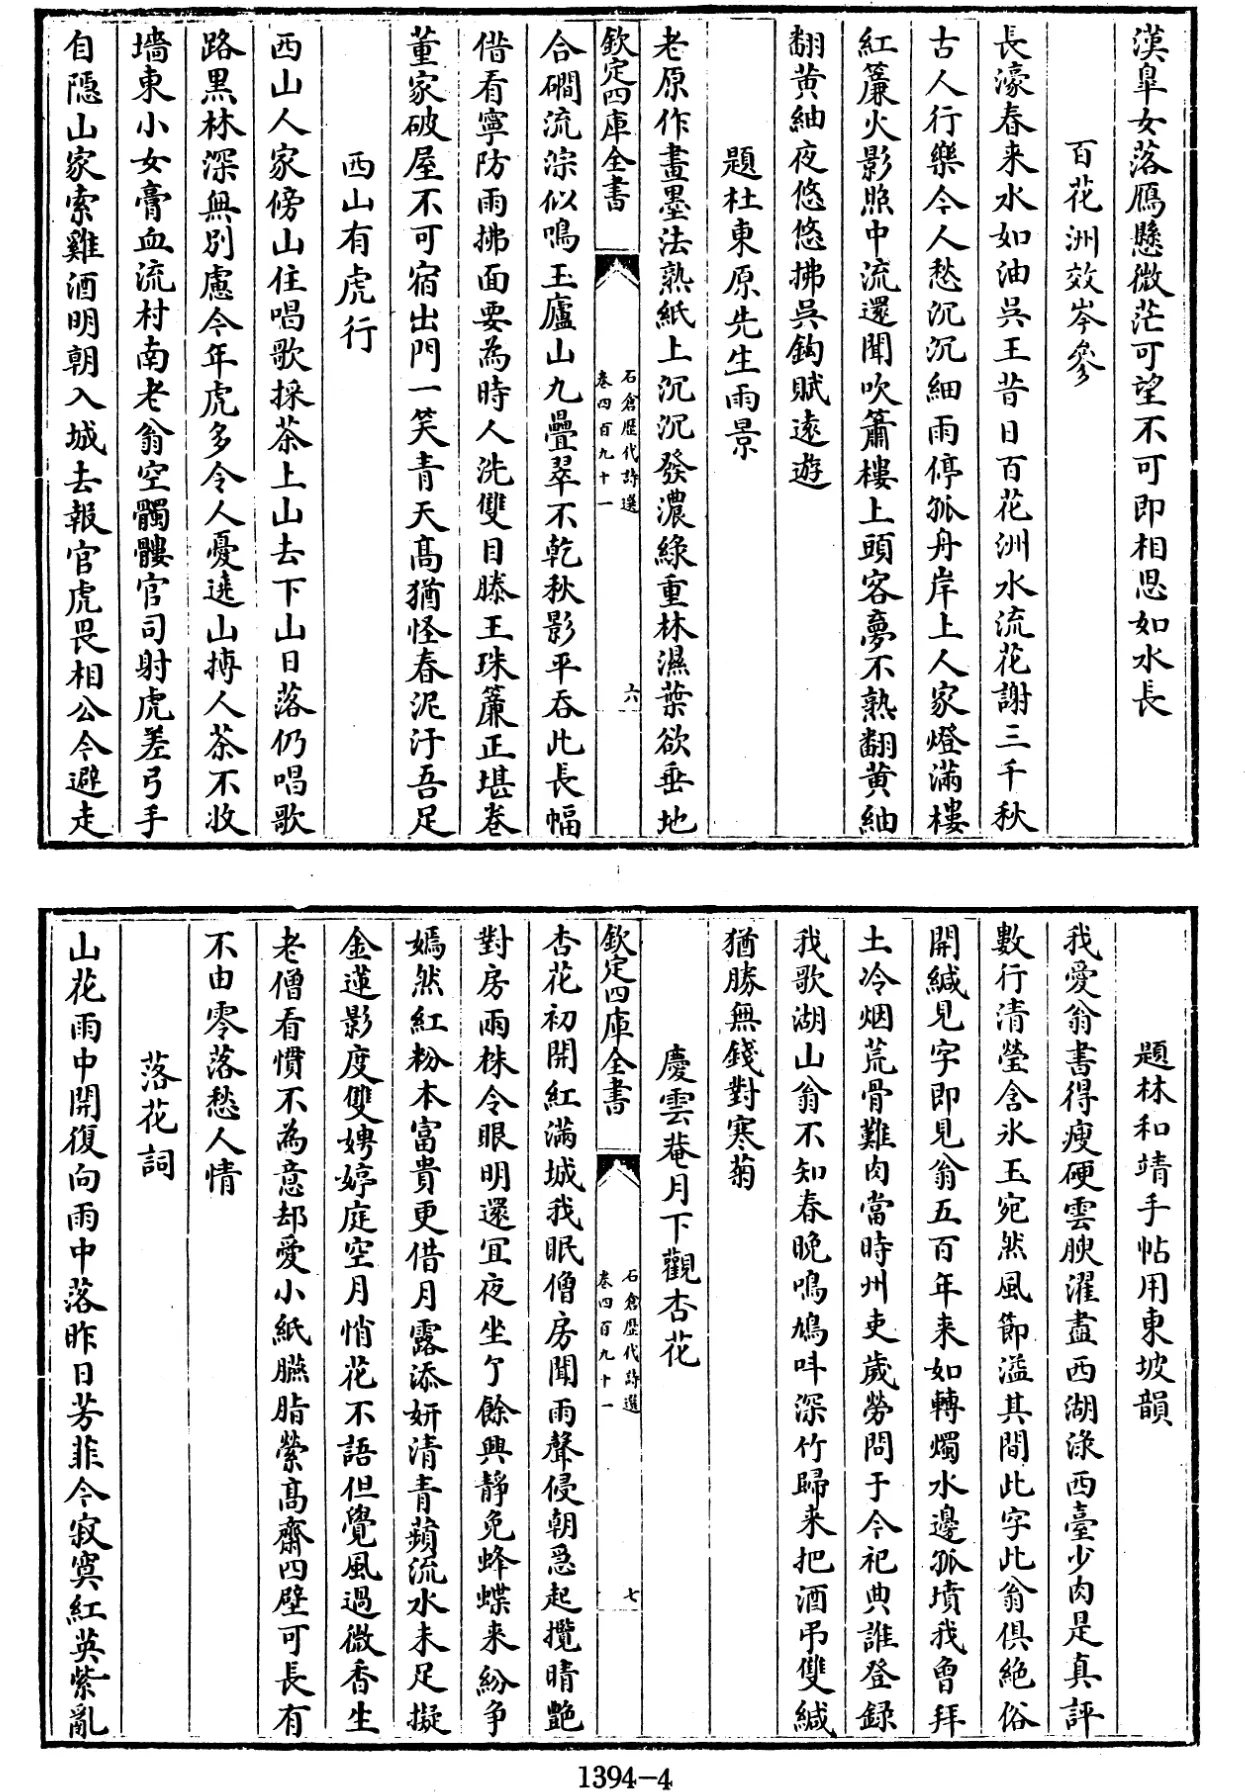 漢臯女落鴈懸微茫可望不可即相思如水長
百花洲效岑參
長濠春来水如油呉王昔日百花洲水流花謝三千秋
古人行樂今人愁沉沉細雨停孤舟岸上人家燈滿樓
紅簾火影照中流還聞吹簫樓上頭客夢不熟翻黄紬
翻黄紬夜悠悠拂呉鈎賦遠遊
題杜東原先生雨景
老原作畫墨法熟紙上沉沉發濃緑重林濕葉欲垂地
欽定四庫全書
石倉歷代詩選
卷四百九十一
六
合磵流淙似鳴玉廬山九疊翠不乾秋影平吞此長幅
借看寧防雨拂面要為時人洗雙目滕王珠簾正堪卷
董家破屋不可宿出門一笑青天髙猶怪春泥汙吾足
西山有虎行
西山人家傍山住唱歌採茶上山去下山日落仍唱歌
路黒林深無別慮今年虎多令人憂遶山搏人茶不收
墻東小女膏血流村南老翁空髑髏官司射虎差弓手
自隠山家索雞酒明朝入城去報官虎畏相公今避走
題林和靖手帖用東坡韻
我愛翁書得瘦硬雲腴濯盡西湖渌西臺少肉是真評
數行清瑩含氷玉宛然風節溢其間此字此翁俱絶俗
開緘見字即見翁五百年来如轉燭水邊孤墳我曾拜
土冷烟荒骨難肉當時州吏歲勞問于今祀典誰登録
我歌湖山翁不知春晩鳴鳩呌深竹歸来把酒弔雙緘
猶勝無錢對寒菊
慶雲菴月下觀杏花
杏花初開紅滿城我眠僧房聞雨聲侵朝急起攬晴艷
欽定四庫全書
石倉歷代詩選
卷四百九十一
七
對房兩株令眼明還冝夜坐了餘興靜免蜂蝶来紛争
嫣然紅粉本富貴更借月露添妍清青蘋流水未足擬
金蓮影度雙娉婷庭空月悄花不語但覺風過微香生
老僧看慣不為意却愛小紙臙脂縈髙齋四壁可長有
不由零落愁人情
落花詞
山花雨中開復向雨中落昨日芳菲今寂寞紅英紫亂
1394-4